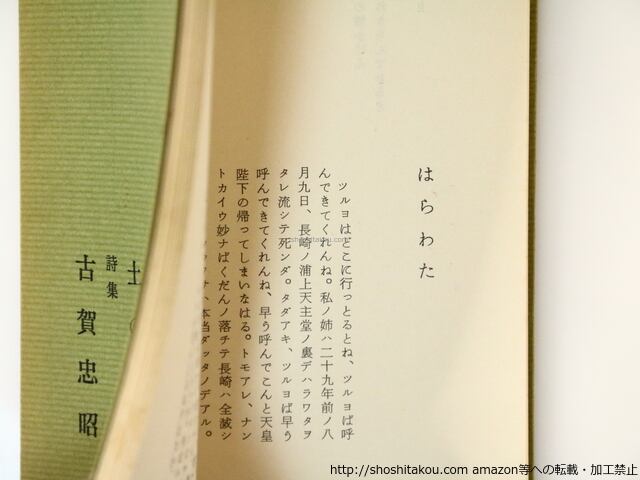 はらわた
ツルヨはどこに行っとるとね、ツルヨば呼
んできてくれんね。私ノ姉ハ二十九年前ノ八
月九日、長崎ノ浦上天主堂ノ裏デハラワタヲ
タレ流シテ死ンダ。タダアキ、ツルヨば早う
呼んできてくれんね、早う呼んでこんと天皇
陛下の帰ってしまいなはる。トモアレ、ナン
トカイウ妙ナばくだんノ落チテ長崎ハ全滅シ
ハ本当ダッタノデアル。
土
詩集
古賀忠昭
shoshitakou.com
http://shoshitakou.com amazon等への転載・加工禁止